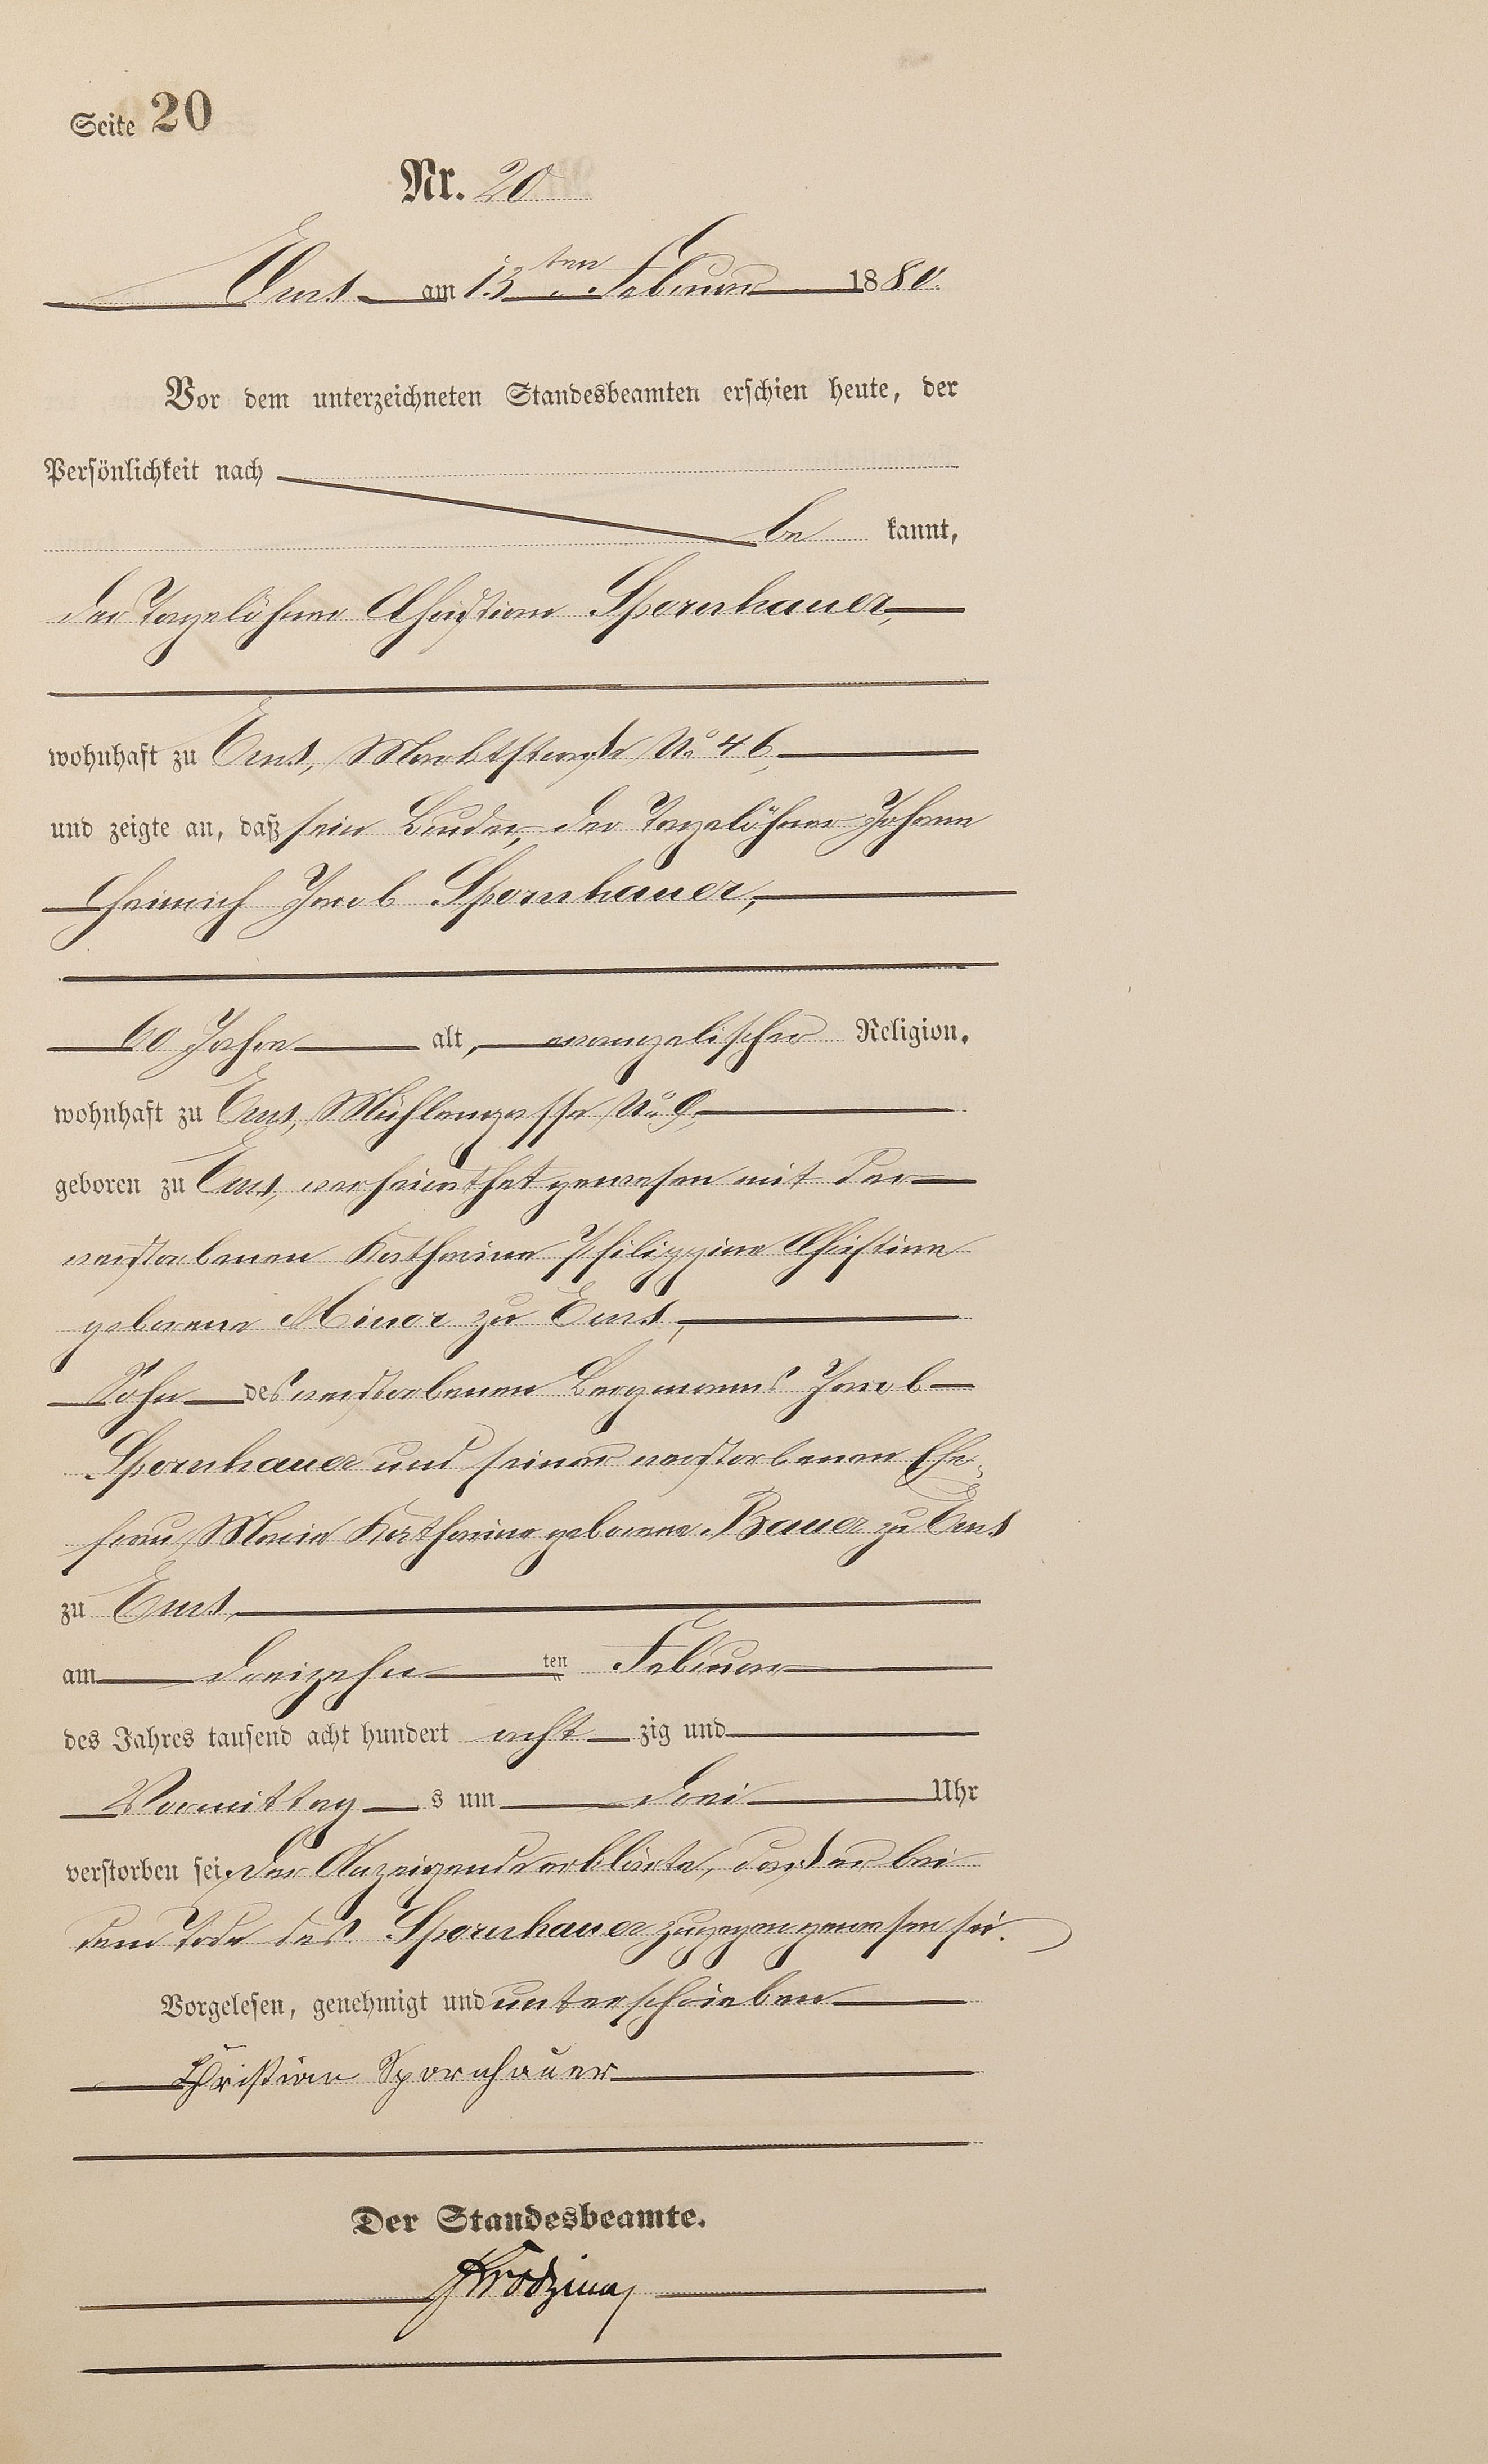 Seite 20
Nr. 20
Ems am 13ten Februar 1880.
Vor dem unterzeichneten Standesbeamten erschien heute, der
Persönlichkeit nach
be kannt,
der Tagelöhner Christian Spornhauer,
wohnhaft zu Ems, Marktstraße No 46,
und zeigte an, daß sein Bruder, der Tagelöhner Johann
Heinrich Jacob Spornhauer,
60 Jahre alt, evangelischer Religion.
wohnhaft zu Ems, Mühlengasse No 9,
geboren zu Ems, verheirathet gewesen mit der
verstorbenen Katharine Philippine Christine
geborene Minor zu Ems,
Sohn des verstorbenen Bergmanns Jacob
Spornhauer und seiner verstorbenen Ehe-
frau Marie Katharine geborene Bauer zu Ems
zu Ems,
am dreizehn ten Februar
des Jahres tausend acht hundert acht zig und
Vormittag s um drei Uhr
verstorben sei. Der Anzeigende erklärte, daß er bei
dem Tode des Spornhauer zugegen gewesen sei.
Vorgelesen, genehmigt und unterschrieben
Christian Spornhauer
Der Standesbeamte.